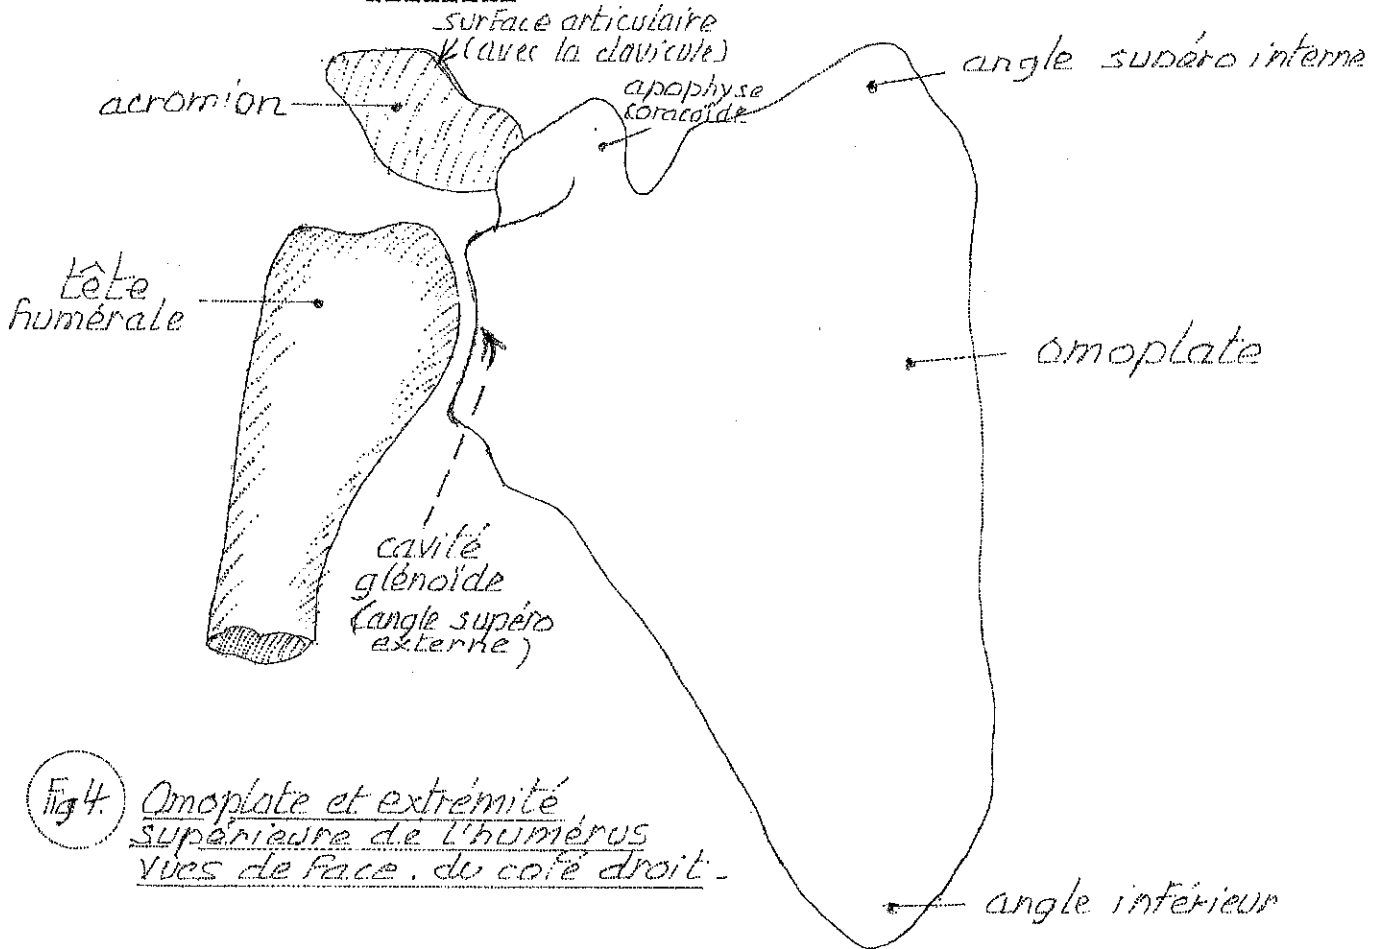 surface articulaire
(avec la clavicule)
acromion
apophyse
coracoïde
angle supéro interne
tête
humérale
omoplate
cavité
glénoïde
(angle supéro
externe)
Fig 4.
Omoplate et extrémité
supérieure de l'humérus
vues de face. du coté droit -
angle inférieur